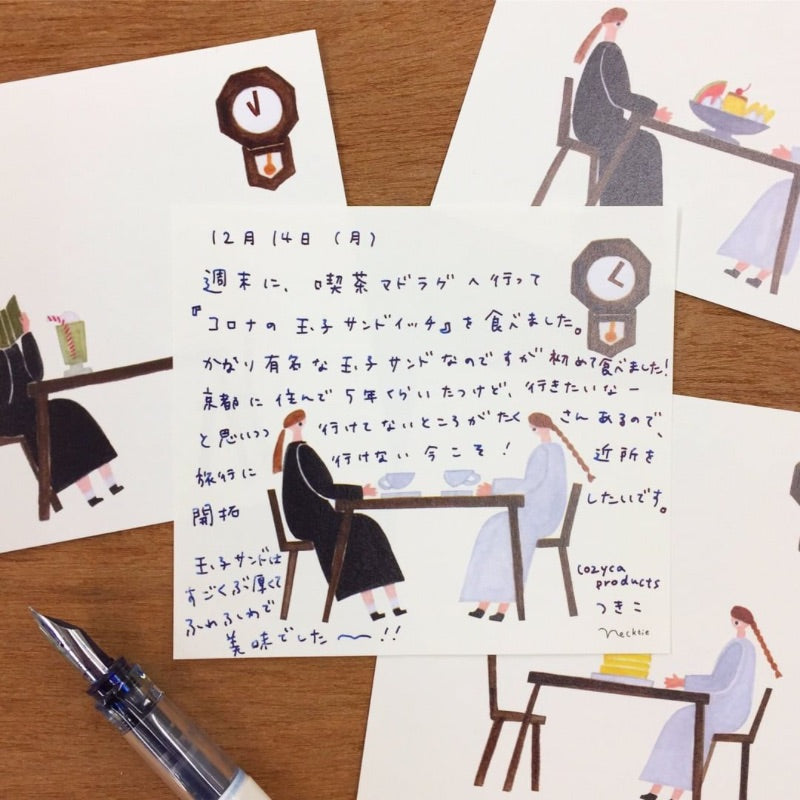 12月14日(月)
週末に、喫茶マドラグへ行って
『コロナの玉子サンドイッチ』を食べました。
かなり有名な玉子サンドなのですが初めて食べました!
京都に住んで5年くらいたつけど、行きたいなー
と思いつつ 行けてないところがたくさんあるので、
旅行に 行けない今こそ! 近所を
開拓 したいです。
玉子サンドは
すごくぶ厚くて
ふわふわで
美味でした〜!!
cozyca
products
つきこ
necktie